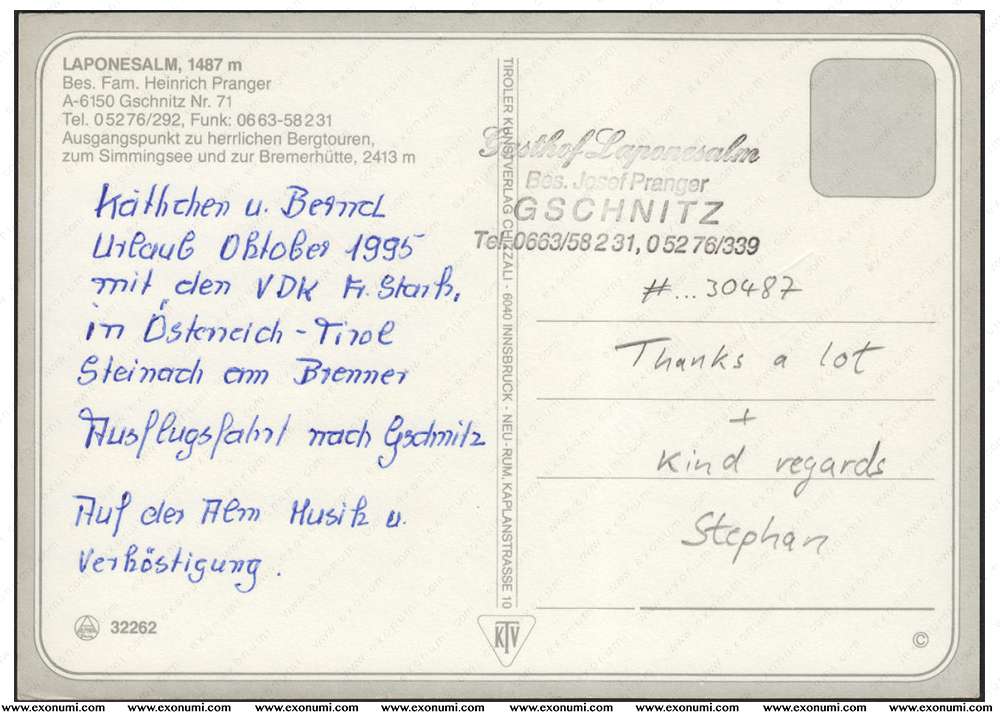 LAPONESALM, 1487 m
Bes. Fam. Heinrich Pranger
A-6150 Gschnitz Nr. 71
Tel. 05276/292, Funk: 0663-58231
Ausgangspunkt zu herrlichen Bergtouren,
zum Simmingsee und zur Bremerhütte, 2413 m
Käthchen u. Bernd
Urlaub Oktober 1995
mit den VDK Fr. Stark,
in Österreich - Tirol
Steinach am Brenner
Ausflugsfahrt nach Gschnitz
Auf der Alm Musik u.
Verköstigung.
32262
TIROLER KUNSTVERLAG CHIZZALI · 6040 INNSBRUCK · NEU-RUM, KAPLANSTRASSE 10
KTV
Gasthof Laponesalm
Bes. Josef Pranger
GSCHNITZ
Tel. 0663/58 2 31, 0 52 76/339
#...30487
Thanks a lot
+
kind regards
Stephan
©
www.exonumi.com www.exonumi.com www.exonumi.com www.exonumi.com www.exonumi.com www.exonumi.com www.exonumi.com www.exonumi.com